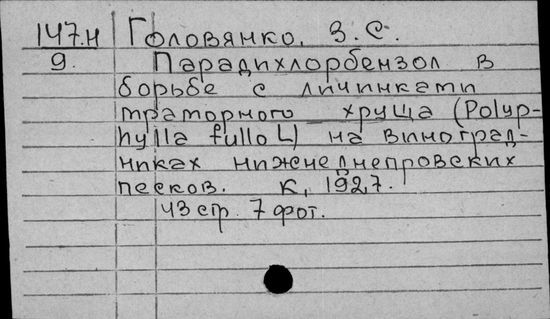 147.н Головянко, З. С.
9. Парадихлорбензол в
борьбе с личинками
траторного хруща (Polyp-
hylla fullo L) на виноград-
никах нижнеднепровских
песков. К, 1927.
43 стр. 7 фот.